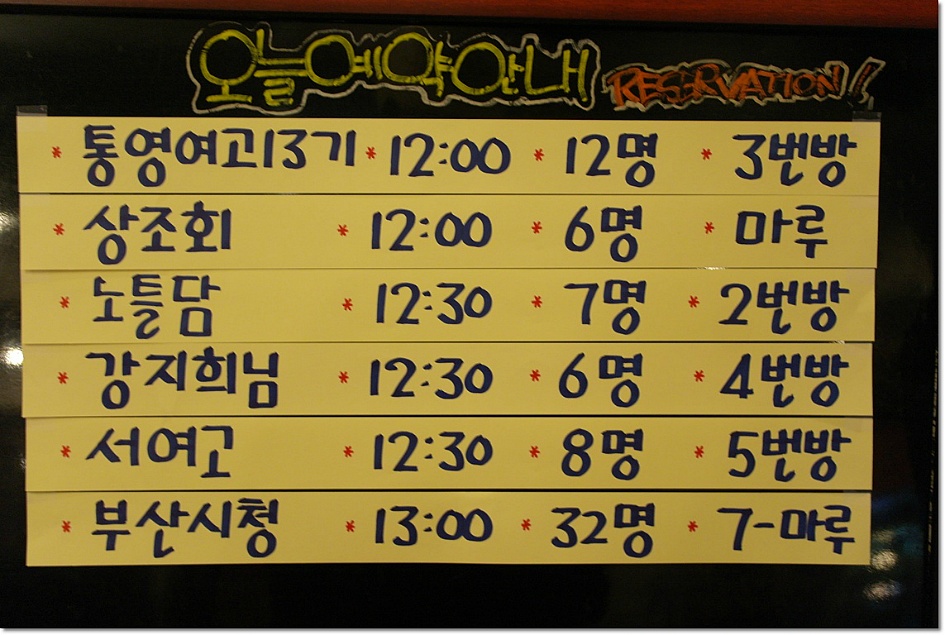 오늘예약안내 RESERVATION!!
* 통영여고13기 * 12:00 * 12명 * 3번방
* 상조회 * 12:00 * 6명 * 마루
* 노틀담 * 12:30 * 7명 * 2번방
* 강지희님 * 12:30 * 6명 * 4번방
* 서여고 * 12:30 * 8명 * 5번방
* 부산시청 * 13:00 * 32명 * 7-마루